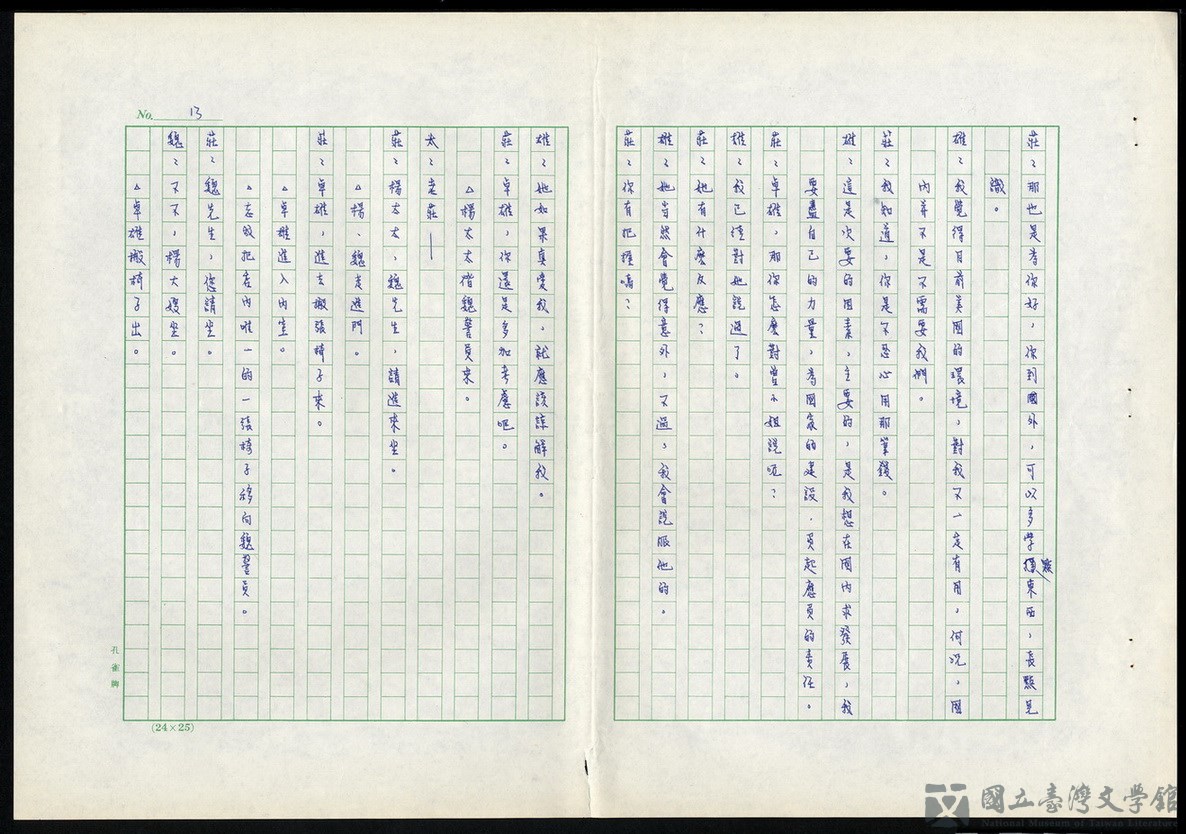 莊：那也是為你好，你到國外，可以多學點東西，長點見
識。
雄：我覺得目前美國的環境，對我不一定有用，何況，國
內并不是不需要我們。
莊：我知道，你是不忍心用那筆錢。
雄：這是次要的因素，主要的，是我想在國內求發展，我
要盡自己的力量，為國家的建設．負起應負的責任。
莊：卓雄，那你怎麼對曾小姐說呢？
雄：我已經對她說過了。
莊：她有什麼反應？
雄：她當然會覺得意外，不過，我會說服他的。
莊：你有把握嗎？
雄：她如果真愛我，就應該諒解我。
莊：卓雄，你還是多加考慮吧。
△楊太太偕魏警員來。
太：老莊——
莊：楊太太，魏先生，請進來坐。
△楊、魏走進門。
莊：卓雄，進去搬張椅子來。
△卓雄進入內室。
△志毅把店內唯一的一張椅子移向魏警員。
莊：魏先生，您請坐。
魏：不不，楊大嫂坐。
△卓雄搬椅子出。
No. 13
孔雀牌
(24×25)
國立臺灣文學館
National Museum of Taiwan Literature